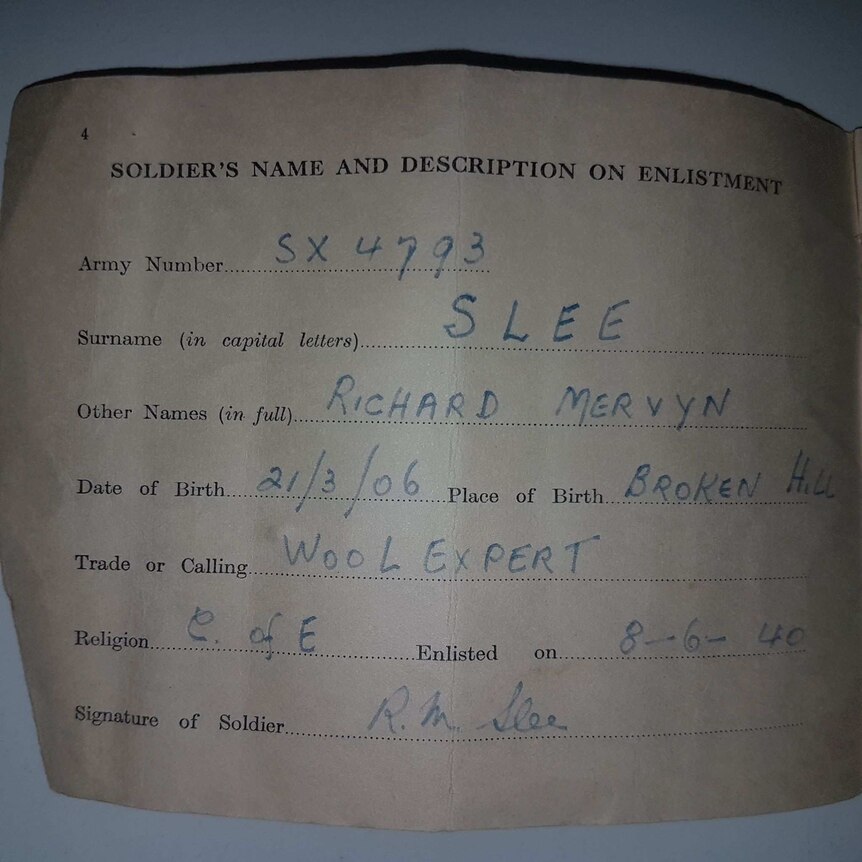 4
SOLDIER'S NAME AND DESCRIPTION ON ENLISTMENT
Army Number SX 4793
Surname (in capital letters) SLEE
Other Names (in full) RICHARD MERVYN
Date of Birth 21/3/06 Place of Birth BROKEN HILL
Trade or Calling WOOL EXPERT
Religion C. of E Enlisted on 8-6-40
Signature of Soldier R. M. Slee